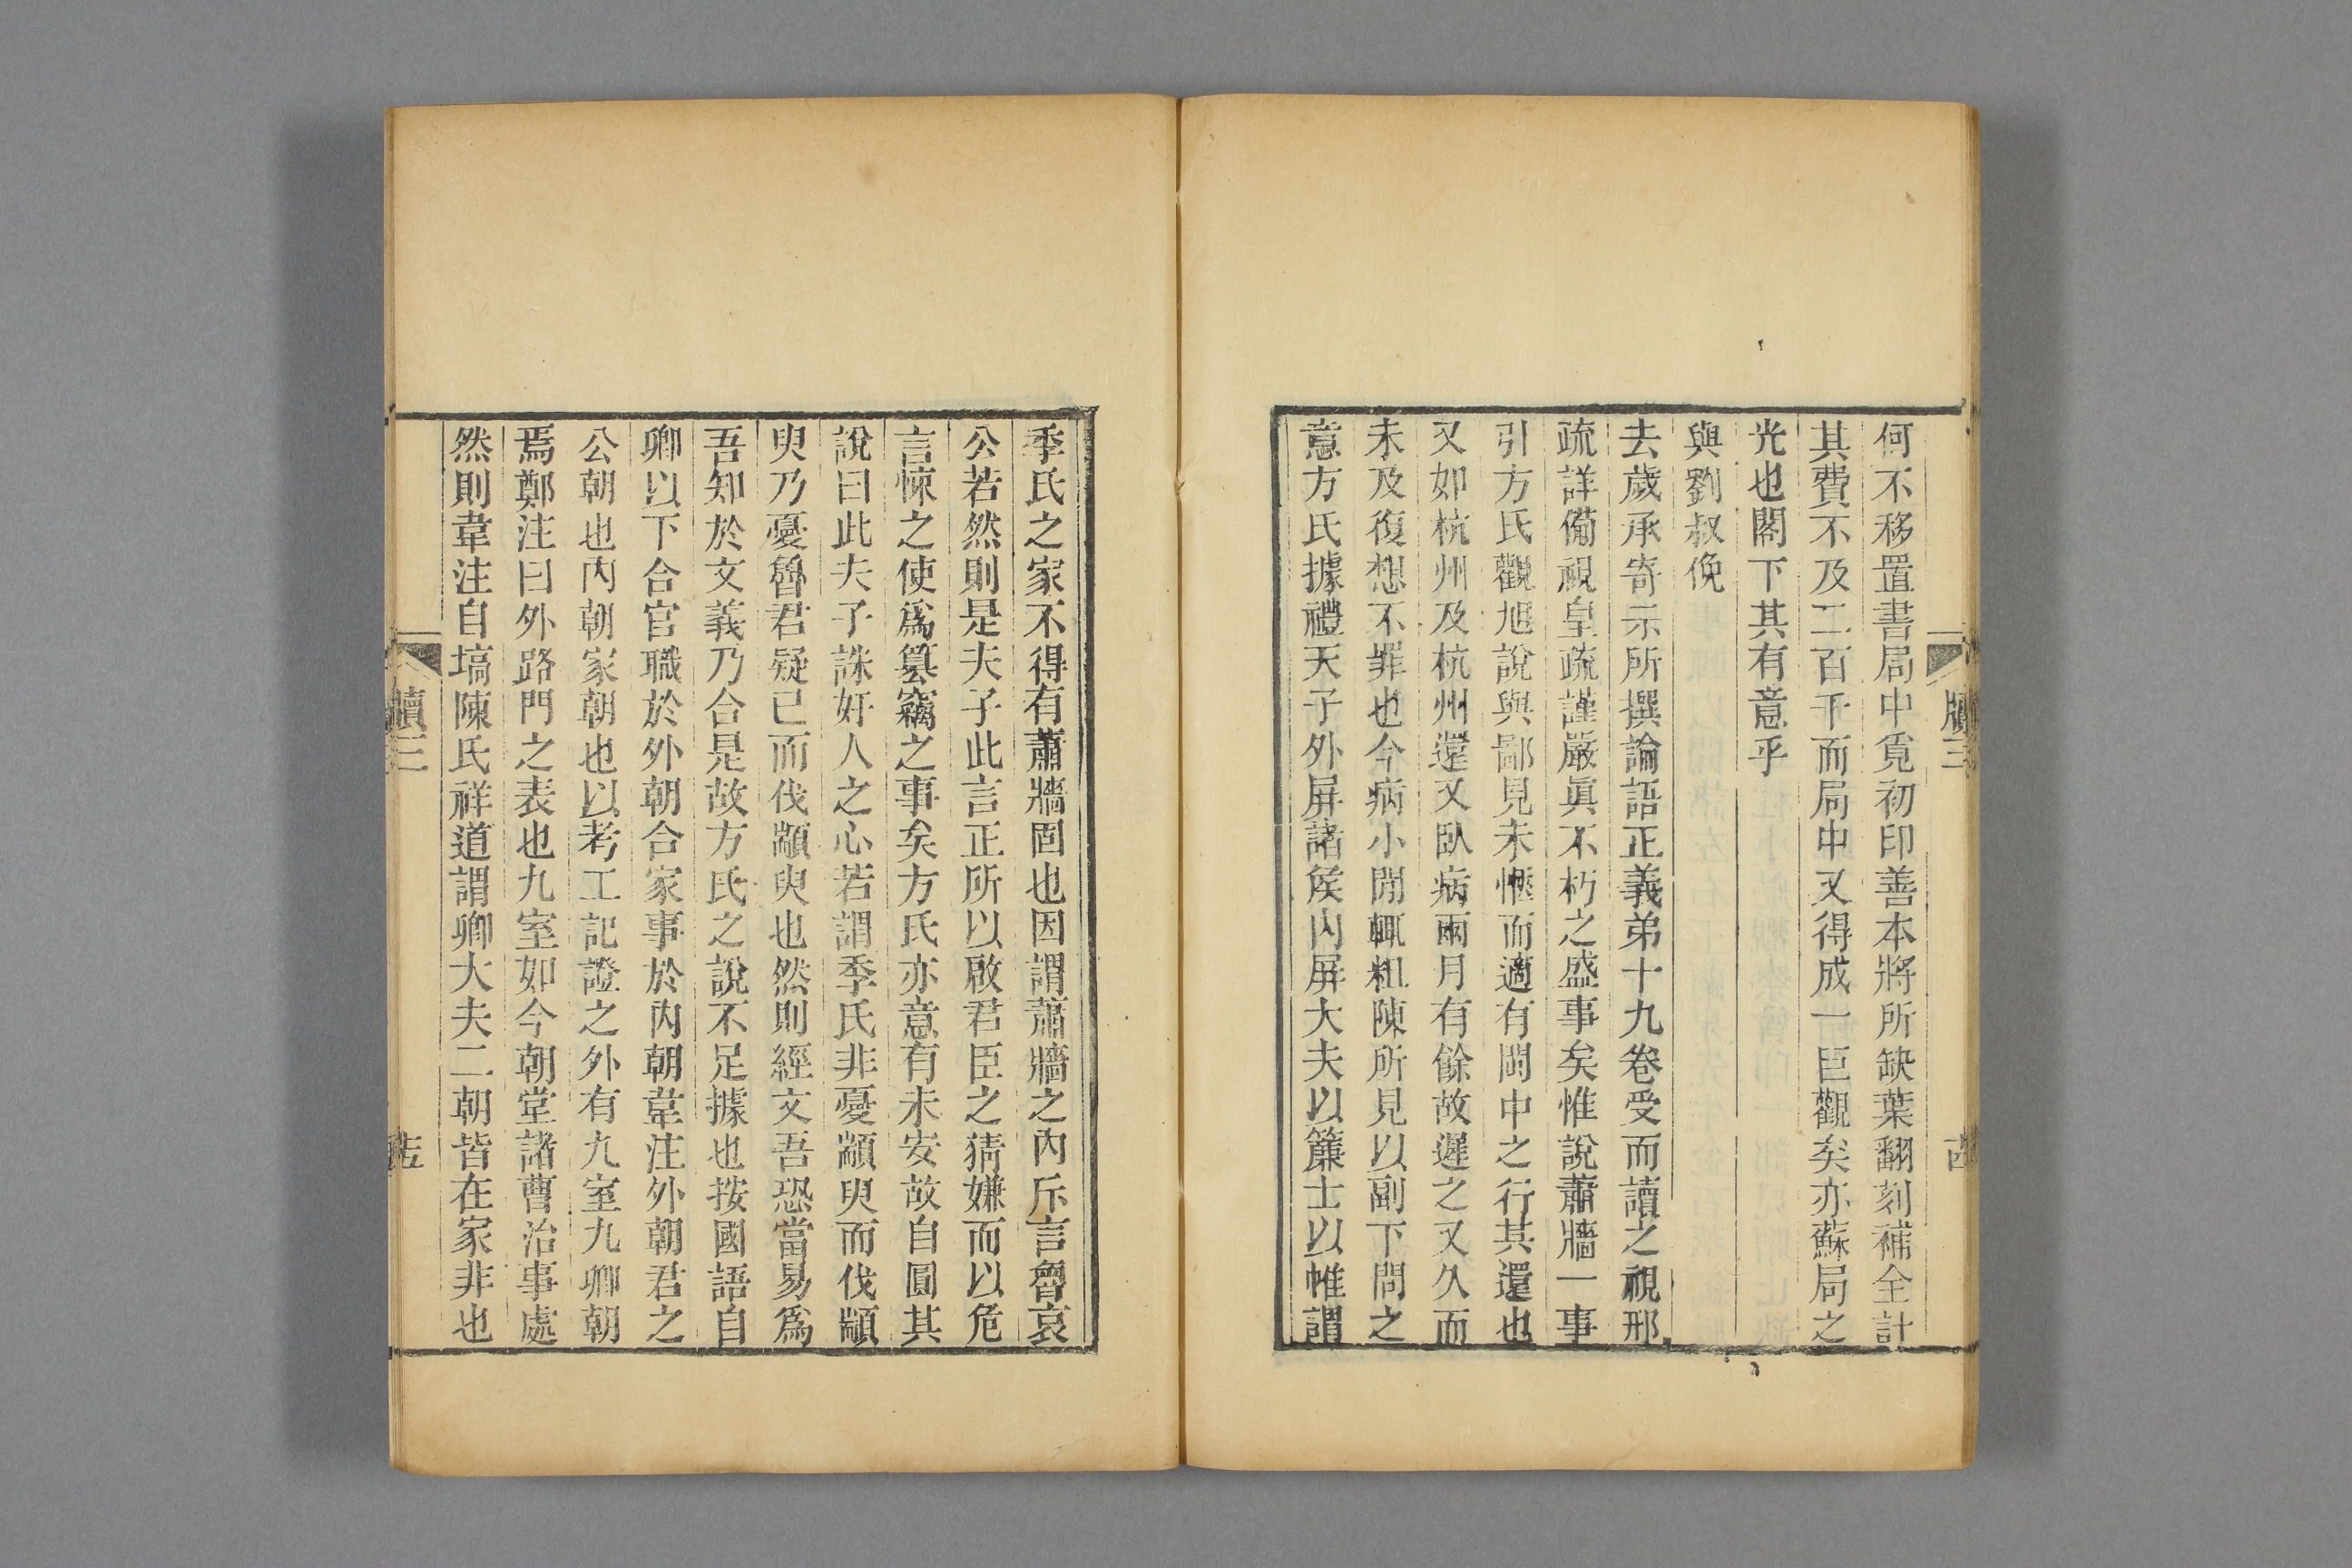 何不移置書局中覓初印善本將所缺葉翻刻補全計
其費不及二百千而局中又得成一巨觀矣亦蘇局之
光也閣下其有意乎
與劉叔俛
去歲承寄示所撰論語正義弟十九卷受而讀之視邢
疏詳備視皇疏謹嚴眞不朽之盛事矣惟說蕭牆一事
引方氏觀旭說與鄙見未愜而適有閩中之行其還也
又如杭州及杭州還又臥病兩月有餘故遲之又久而
未及復想不罪也今病小閒輒粗陳所見以副下問之
意方氏據禮天子外屏諸矦內屏大夫以簾士以帷謂
季氏之家不得有蕭牆固也因謂蕭牆之內斥言魯哀
公若然則是夫子此言正所以啟君臣之猜嫌而以危
言悚之使爲篡竊之事矣方氏亦意有未安故自圓其
說曰此夫子誅奸人之心若謂季氏非憂顓臾而伐顓
臾乃憂魯君疑已而伐顓臾也然則經文吾恐當易爲
吾知於文義乃合是故方氏之說不足據也按國語自
卿以下合官職於外朝合家事於內朝韋注外朝君之
公朝也內朝家朝也以考工記證之外有九室九卿朝
焉鄭注曰外路門之表也九室如今朝堂諸曹治事處
然則韋注自塙陳氏祥道謂卿大夫二朝皆在家非也
牘三